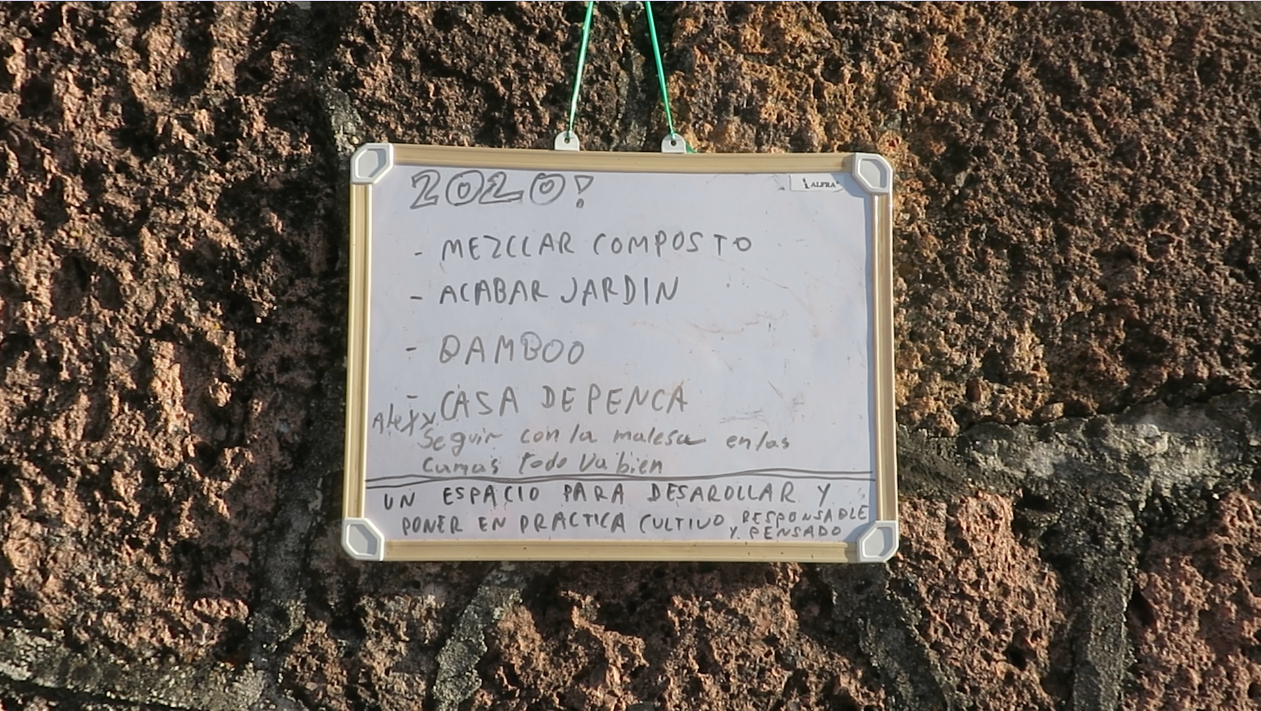 2020!
ALFRA
- MEZCLAR COMPOSTO
- ACABAR JARDIN
- BAMBOO
- CASA DE PENCA
Alexx
Seguir con la malesa en las
camas todo va bien
UN ESPACIO PARA DESAROLLAR Y
PONER EN PRACTICA CULTIVO RESPONSABLE
Y PENSADO